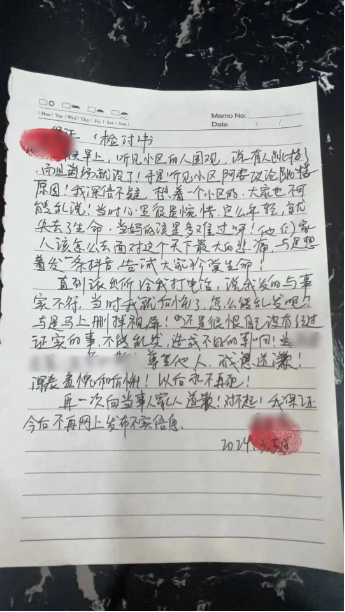 Mon Tue Wed Thu Fri Sat Sun
Memo No.
Date / /
保证 (检讨书)
早上,听见小区的人围观,说有人跳楼
而且当场就没了!于是听见小区阿婆议论跳楼
原因!我深信不疑 想着一个小区的,大家也不可
能乱说!当时心里很是惋惜,怎么年轻,就
失去了生命,当妈的该是多难过呀!他们家
人该怎么去面对这个天下最大的悲痛,于是想
着发一条抖音,告诫大家珍爱生命!
直到派出所给我打电话,说我发的与事
实不符,当时我就后悔了,怎么能乱发呢?
于是马上删掉视屏!还是很恨自己没有经过
证实的事,不能乱发,造成不好的影响!
尊重他人,我想道歉!
深表愧疚和后悔!以后永不再犯!
再一次向当事人家人道歉!对不起!我保证
今后不再网上发布不实信息。
2024.3.5日